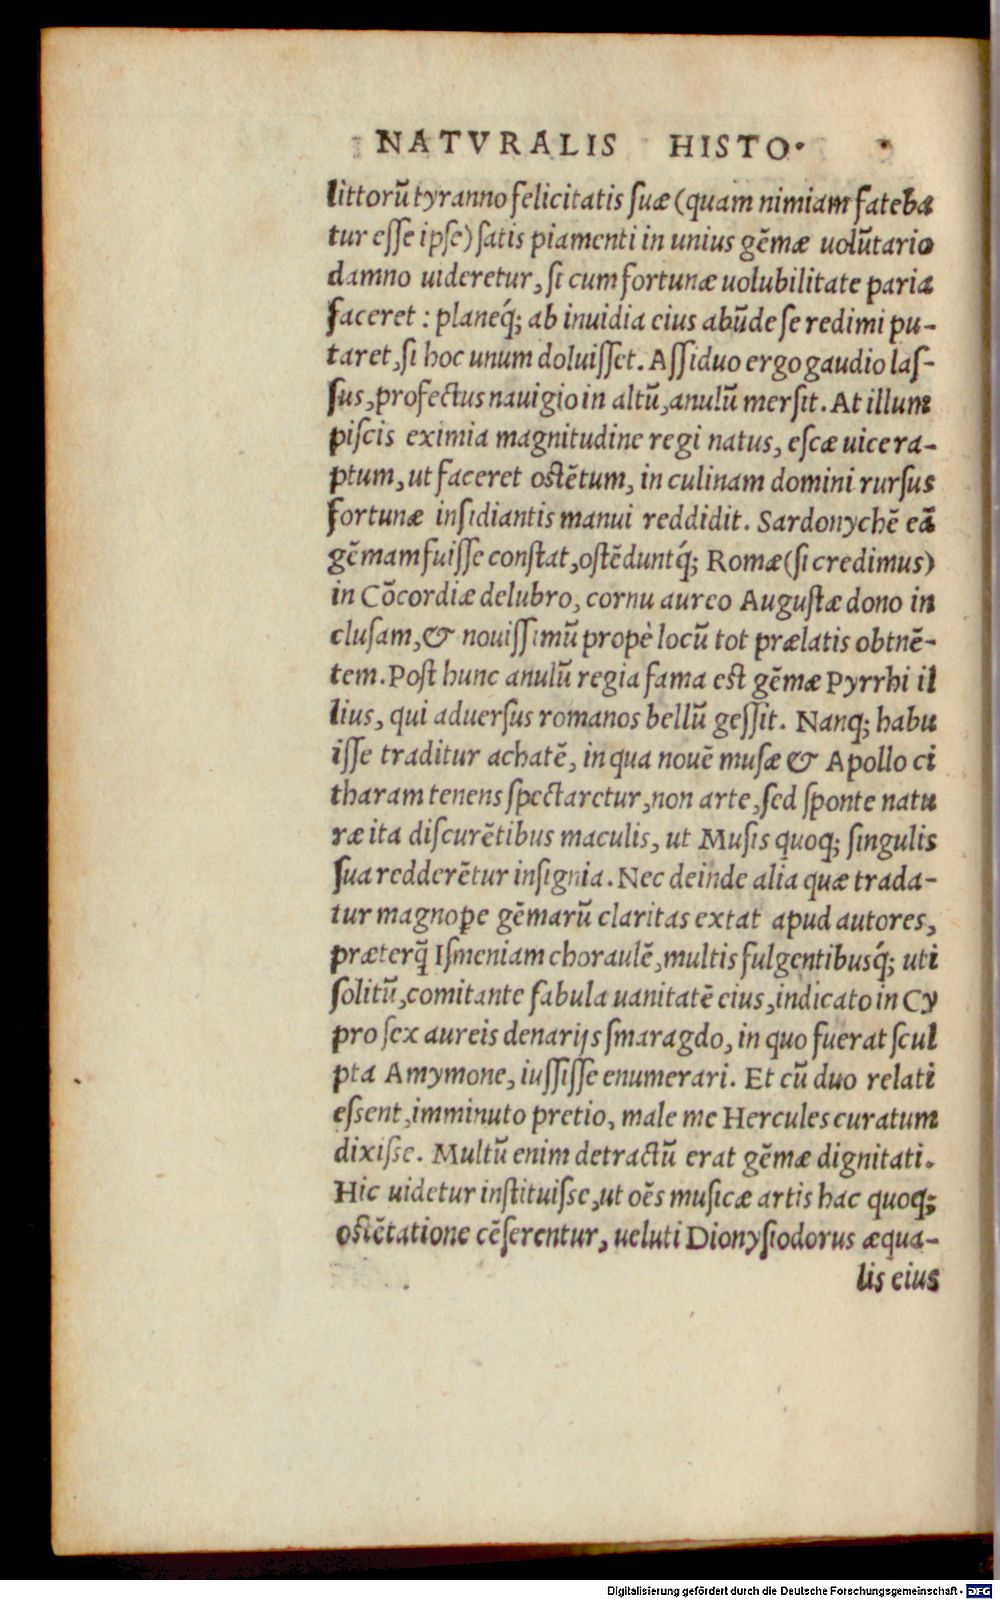 NATVRALIS HISTO·
littorũ tyranno felicitatis ſuæ (quam nimiam fateba
tur eſſe ipſe) ſatis piamenti in unius gẽmæ uolũtario
damno uideretur, ſi cum fortunæ uolubilitate paria
faceret : planeq́; ab inuidia eius abũde ſe redimi pu-
taret, ſi hoc unum doluiſſet. Aſſiduo ergo gaudio laſ-
ſus, profectus nauigio in altũ, anulũ merſit. At illum
piſcis eximia magnitudine regi natus, eſcæ uice ra-
ptum, ut faceret oſtẽtum, in culinam domini rurſus
fortunæ inſidiantis manui reddidit. Sardonychẽ eã
gẽmam fuiſſe conſtat, oſtẽduntq́; Romæ (ſi credimus)
in Cõcordiæ delubro, cornu aureo Auguſtæ dono in
cluſam, & nouiſſimũ propè locũ tot prælatis obtnẽ-
tem. Poſt hunc anulũ regia fama eſt gẽmæ Pyrrhi il
lius, qui aduerſus romanos bellũ geſſit. Nanq; habu
iſſe traditur achatẽ, in qua nouẽ muſæ & Apollo ci
tharam tenens ſpectaretur, non arte, ſed ſponte natu
ræ ita diſcurẽtibus maculis, ut Muſis quoq; ſingulis
ſua redderẽtur inſignia. Nec deinde alia quæ trada-
tur magnope gẽmarũ claritas extat apud autores,
præterq̃ Iſmeniam choraulẽ, multis fulgentibusq́; uti
ſolitũ, comitante fabula uanitatẽ eius, indicato in Cy
pro ſex aureis denarijs ſmaragdo, in quo fuerat ſcul
pta Amymone, iuſſiſſe enumerari. Et cũ duo relati
eſſent, imminuto pretio, male me Hercules curatum
dixiſſe. Multũ enim detractũ erat gẽmæ dignitati.
Hic uidetur inſtituiſſe, ut oẽs muſicæ artis hac quoq;
oſtẽtatione cẽſerentur, ueluti Dionyſiodorus æqua-
lis eius
Digitalisierung gefördert durch die Deutsche Forschungsgemeinschaft - DFG